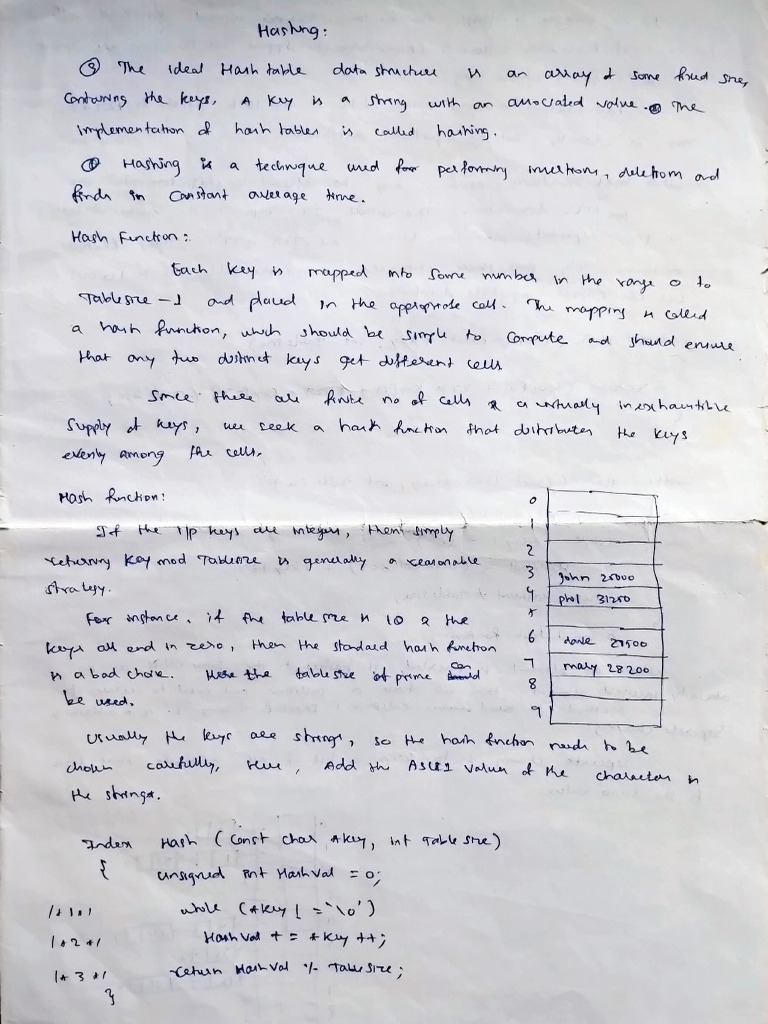 Hashing:
③ The ideal Hash table data structure is an array of some fixed size,
Containing the keys. A key is a string with an associated value. The
implementation of hash tables is called hashing.
① Hashing is a technique used for performing insertions, deletions and
finds in constant average time.
Hash Function:
Each key is mapped into some number in the range 0 to
Tablesize-1 and placed in the appropriate cell. The mapping is called
a hash function, which should be simple to compute and should ensure
that any two distinct keys get different cells
Since there are finite no of cells & a virtually inexhaustible
Supply of keys, we seek a hash function that distributes the keys
evenly among the cells.
Hash function:
If the I/p keys are integers, then simply
returning key mod Tablesize is generally a reasonable
strategy.
For instance, if the table size is 10 & the
keys all end in zero, then the standard hash function
is a bad choice. Here the tablesize of prime can
be used.
0
1
2
3 John 25000
4 phil 31250
5
6 dave 27500
7 mary 28200
8
9
Usually the keys are strings, so the hash function needs to be
chosen carefully, Here, Add the ASCII values of the characters in
the strings.
Index Hash (Const char *key, int Table size)
{ unsigned int HashVal = 0;
/*1*/ while (*key != '\0')
/*2*/ HashVal += *key ++;
/*3*/ return HashVal % TableSize;
}